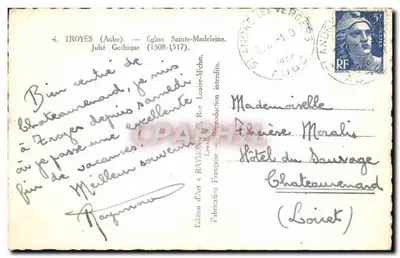 4. TROYES (Aube). — Eglise Sainte-Madeleine.
Jubé Gothique (1508-1517).
Bien rentré de
Chateaurenard, je suis
à Troyes depuis samedi
où je passe une excellente
fin de vacances.
Meilleur souvenir
Raymond
Edition d'Art « RAYMON
Rue Louise-Michel,
Fabrication Française — Reproduction interdite.
ST ANDRE LES VERGERS
AUBE
5F
RF
Mademoiselle
Thérèse Moralis
Hôtel du Sauvage
Chateaurenard
(Loiret)
CPARAMA